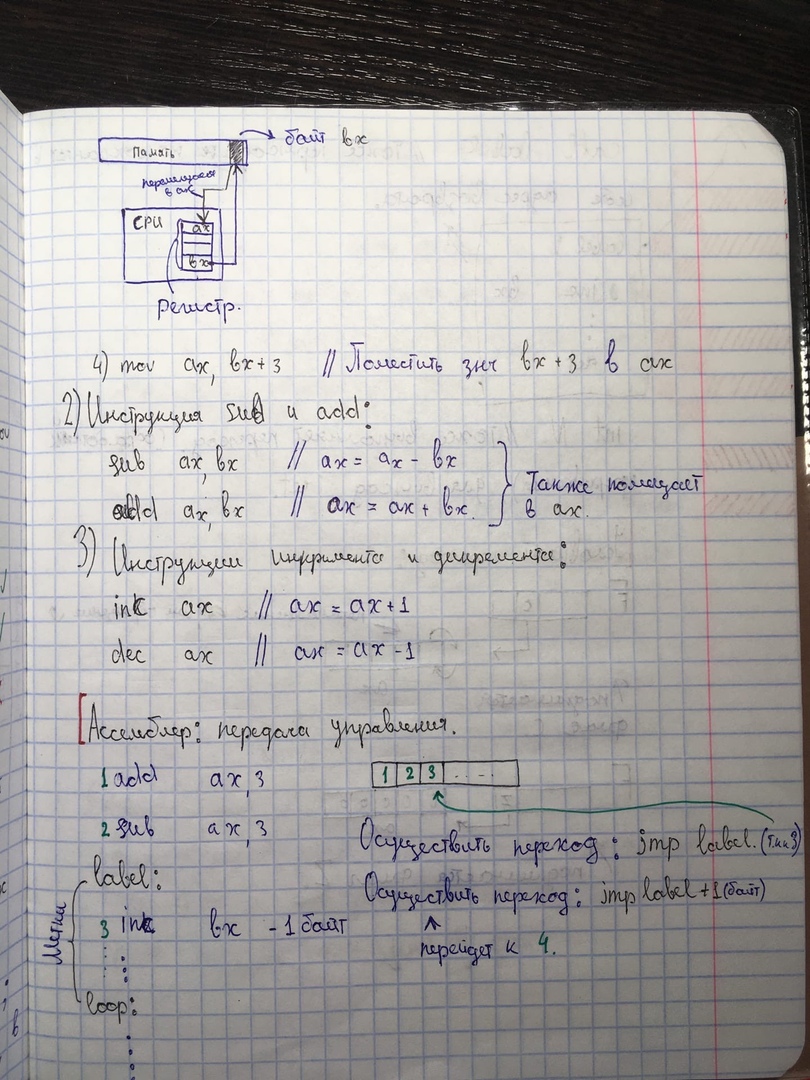 Память
байт bx
перемещаем
в ax
CPU
ax
bx
Регистр.
4) mov ax, bx+3 // Поместить знч bx+3 в ax
2) Инструкция sub и add:
sub ax, bx // ax = ax - bx
add ax, bx // ax = ax + bx.
Также помещает
в ax.
3) Инструкции инкримента и дикремента:
ink ax // ax = ax+1
dec ax // ax = ax-1
Ассемблер: передача управления.
1 add ax, 3
1 2 3 . . - .
2 sub ax, 3
Осуществить переход: jmp label.
label:
Осуществить переход: jmp label+1 (байт)
3 ink bx - 1 байт
перейдет к 4.
Метки
loop: